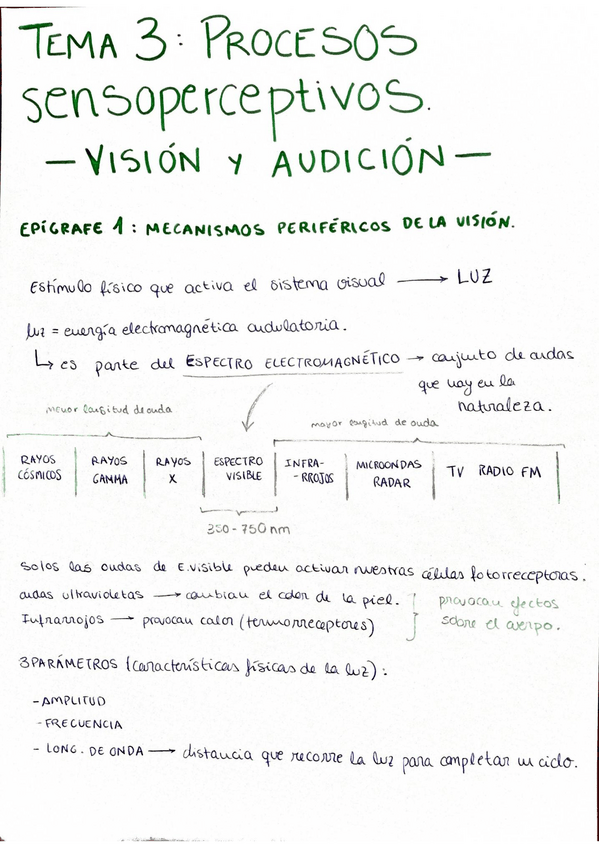 TEMA 3: PROCESOS
sensoperceptivos.
— VISIÓN Y AUDICIÓN —
EPÍGRAFE 1: MECANISMOS PERIFÉRICOS DE LA VISIÓN.
Estímulo físico que activa el sistema visual → LUZ
luz = energía electromagnética ondulatoria.
↳ es parte del ESPECTRO ELECTROMAGNÉTICO → conjunto de ondas
que hay en la
naturaleza.
menor longitud de onda
mayor longitud de onda
RAYOS CÓSMICOS | RAYOS GAMMA | RAYOS X | ESPECTRO VISIBLE | INFRA--RROJOS | MICROONDAS RADAR | TV RADIO FM
350-750 nm
Solos las ondas de E.visible pueden activar nuestras células fotorreceptoras.
ondas ultravioletas → cambian el color de la piel.
Infrarrojos → provocan calor (termorreceptores)
provocan efectos
sobre el cuerpo.
3 PARÁMETROS (características físicas de la luz):
- AMPLITUD
- FRECUENCIA
- LONG. DE ONDA → distancia que recorre la luz para completar un ciclo.